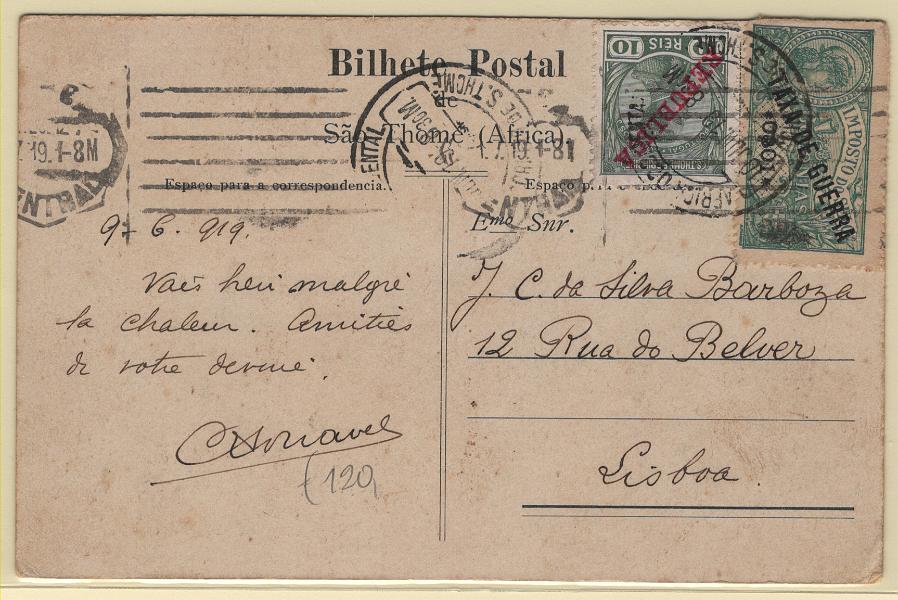 Bilhete Postal
de
São Thomé (África)
Espaço para a correspondencia.
Espaço p
Emo Snr.
10 REIS
REPUBLICA
IMPOSTO DO
GUERRA
S. THOMÉ
CENTRAL
7.19.1-8M
1.7.19.1-8
9-6.919.
Vais
malgré
la chaleur. Amitiés
de votre
J. C. da Silva Barboza
12 Rua do Belver
Lisboa.
(120